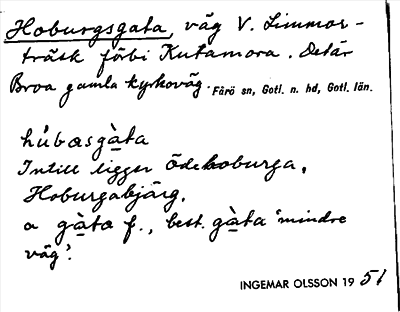 Hoburgsgata, väg V. Limmor-
träsk förbi Kutamora. Det är
Broa gamla kyrkoväg. Fårö sn, Gotl. n. hd, Gotl. län.
hù̇basgà̱ta
Intill ligger Ödehoburga,
Hoburgabjärg.
a gà̱ta f., best. gà̱ta 'mindre
väg'.
INGEMAR OLSSON 19 51